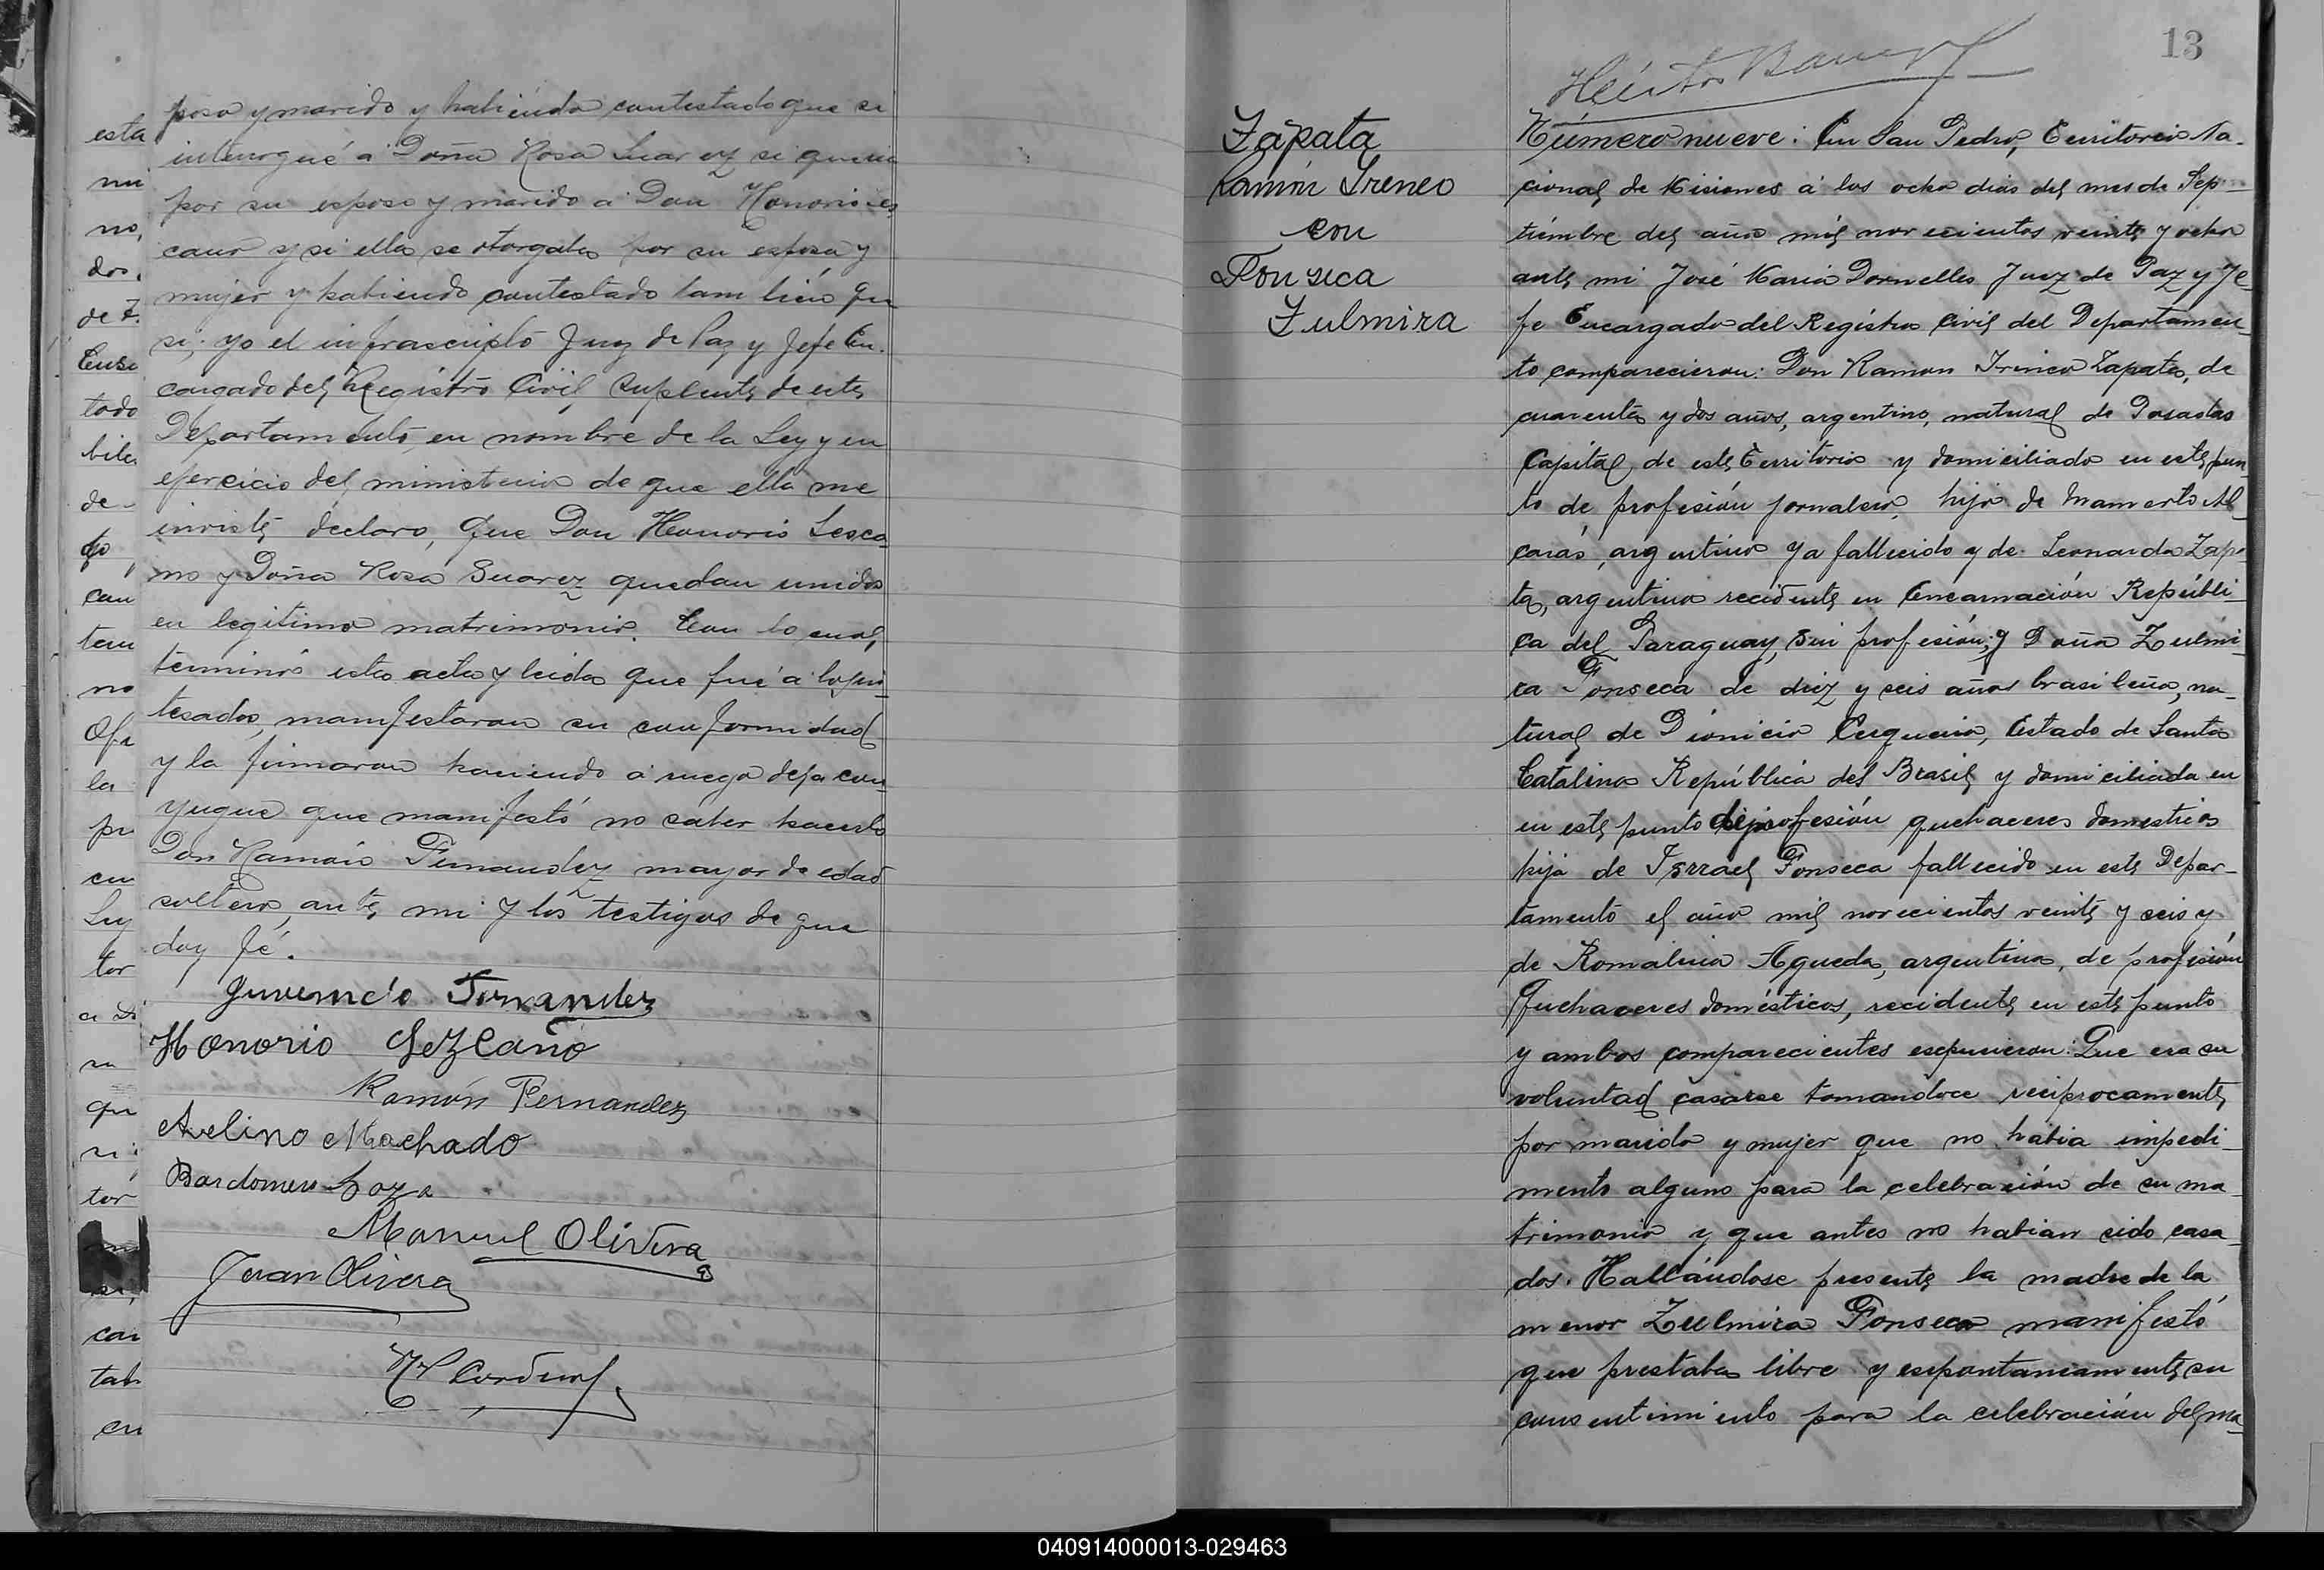 posa y marido y habiendo contestado que si
interrogué a Doña Rosa Suarez si queria
por su esposo y marido a Don Honorio es
cano y si ella se otorgaba por su esposa y
mujer y habiendo contestado tam bién que
si; yo el infrascripto Juez de Paz y Jefe En.
cargado del Registro Civil Suplente de este
Departamento, en nombre de la Ley y en
ejercicio del ministerio de que ella me
inviste declaro, que Don Honorio Lesca
no y Doña Rosa Suarez quedan unidos
en legitimo matrimonio. Con lo cual,
terminó esta acta y leida que fué a los in
tesados, manifestaron su conformidad
y la firmaron haciendo a ruego de la con
yugue que manifestó no saber hacerlo
Don Ramón Fernandez mayor de edad
soltero, ante mi y los testigos de que
doy fé.
Juvencio Fernandez
Honorio Lezcano
Ramón Fernandez
Avelino Machado
Bardomero Loza
Manuel Olivera
Juan Olivera
esta
mi
no,
dos,
todo
bile
de
can
tem
no
la
en
Ley
tor
su
que
si
tor
si,
cau
tab
en
13
Zapata
Ramón Ireneo
con
Fonseca
Zulmira
Número nueve: En San Pedro, Territorio Na-
cional de Misiones á los ocho dias del mes de Sep-
tiembre del año mil novecientos veinte y ocho
ante mi José Maria Dornelles Juez de Paz y Je-
fe Encargado del Registro Civil del Departamen-
to comparecieron: Don Ramon Irineo Zapata, de
cuarenta y dos años, argentino, natural de Posadas
Capital de este Territorio y domiciliado en este pun
to de profesión jornalero, hijo de Mamerto Al-
caras, argentino ya fallecido y de Leonarda Zapa
ta, argentina recidente en Encarnación Repúbli-
ca del Paraguay, sin profesión; y Doña Zulmi-
ra Fonseca de diez y seis años brasileña, na-
tural de Dionicio Cerqueira, Estado de Santa
Catalina República del Brasil y domiciliada en
en este punto de profesión quehaceres domesticos
hija de Isrrael Fonseca fallecido en este Depar-
tamento el año mil novecientos veinte y seis y
de Romalina Agueda, argentina, de profesión
Quehaceres domésticos, recidente en este punto
y ambos comparecientes espucieron: Que era su
voluntad casarse tomandoce reciprocamente
por marido y mujer que no habia impedi-
mento alguno para la celebración de su ma-
trimonio y que antes no habian sido casa-
dos. Hallándose presente la madre de la
menor Zulmira Fonseca manifestó
que prestaba libre y espontaneamente su
consentimiento para la celebración del ma-
040914000013-029463